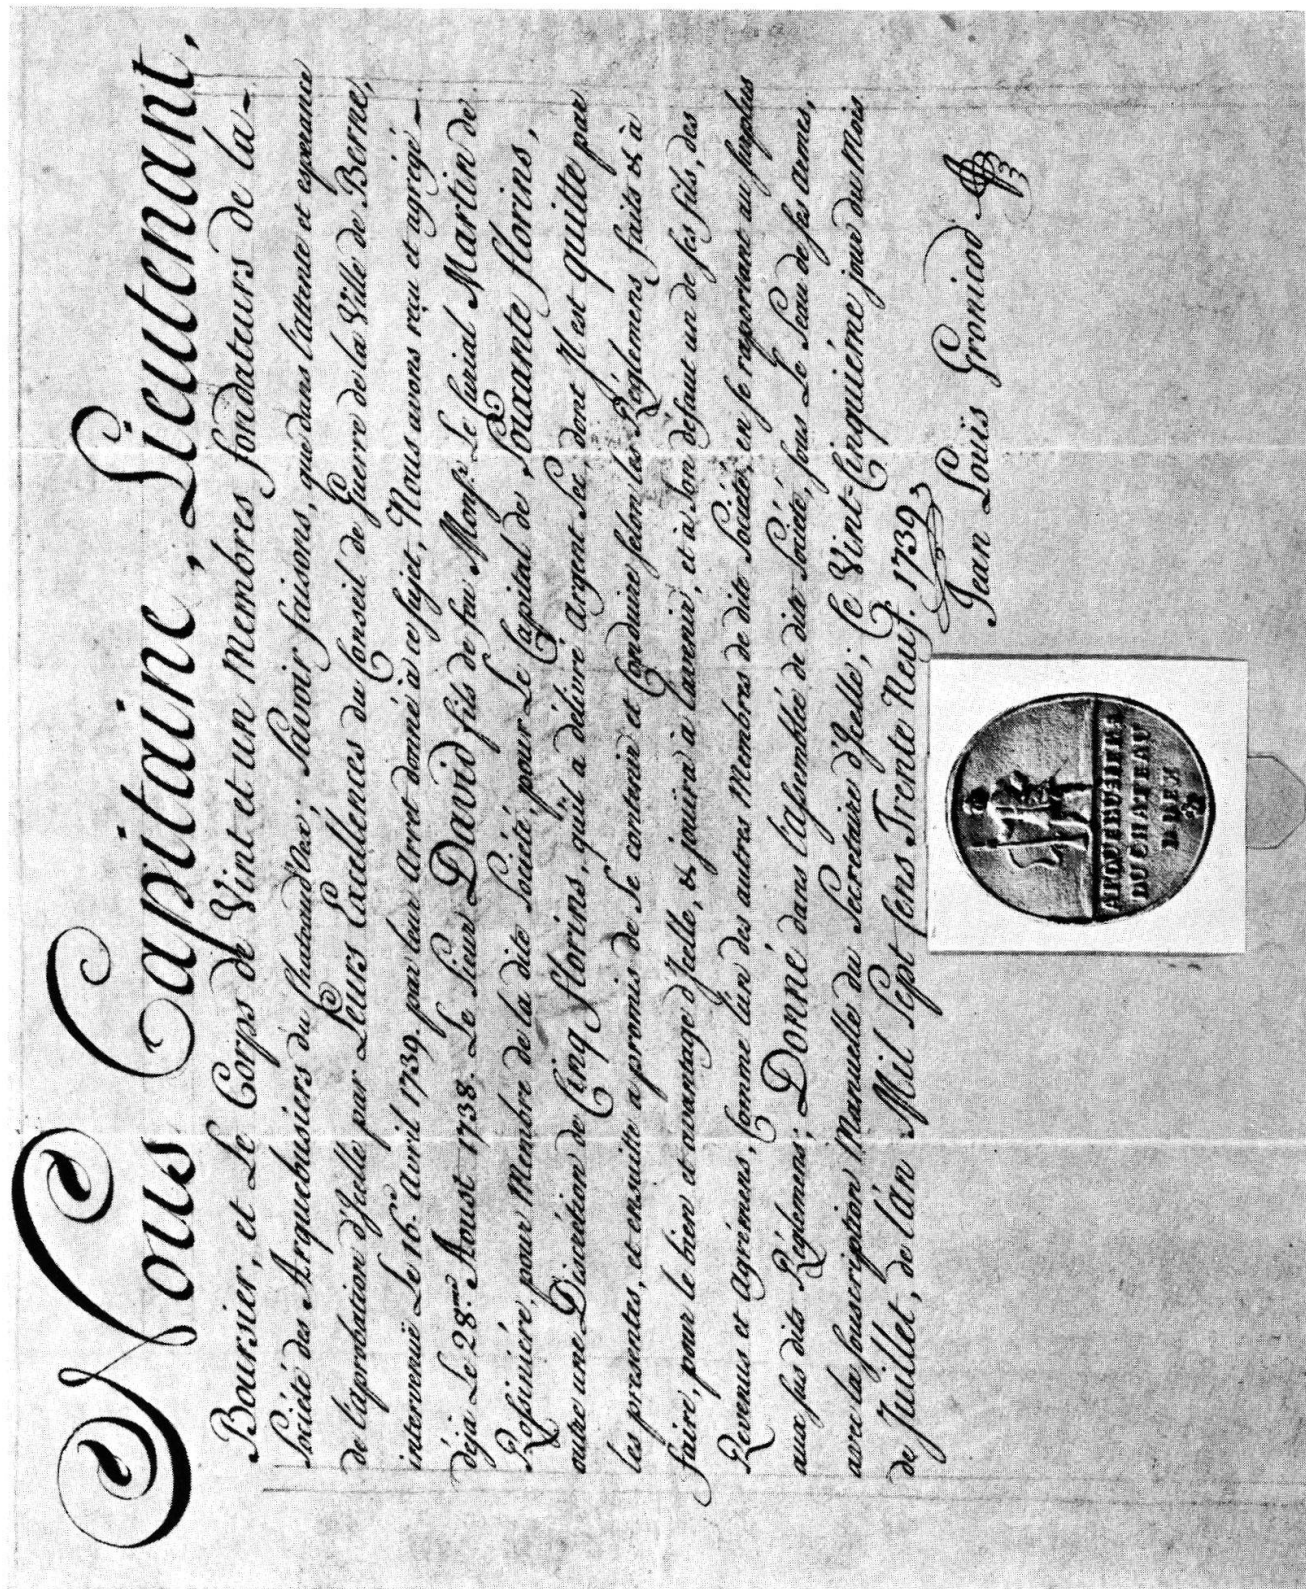 Nous Capitaine, Lieutenant,
Boursier, et Le Corps de Vint et un Membres fondateurs de la-
Société des Arquebusiers du Chateaud'Oex; Savoir faisons, que dans l'attente et esperance
de l'aprobation d'Icelle par Leurs Excellences du Conseil de Guerre de la Ville de Berne,
intervenuë Le 16.e Avril 1739. par leur Arret donné à ce sujet, Nous avons reçu et agrégé -
déja Le 28.me Aoust 1738. Le Sieur David fils de feu Monsr. Le Curial Martin de
Rossiniére, pour Membre de la dite Société pour Le Capital de Soixante florins,
outre une Discrétion de Cinq florins, qu'il a délivré Argent Sec, dont Il est quitte par
les presentes, et ensuitte a promis de Se contenir et Conduire selon les Réglemens faits & à
faire, pour le bien et avantage d'Icelle, & jouira à l'avenir, et à Son defaut un de ses fils, des
Revenus et Agrémens, Comme l'un des autres Membres de dite Société, en se raportant au surplus
aux sus dits Réglemens; Donné dans l'Assemblée de dite Société, sous Le Seau de ses Armes,
avec la Souscription Manuelle du Secretaire d'Icelle; Ce Vint=Cinquiéme jour du Mois
de Juillet, de l'an Mil Sept Cens Trente Neuf. 1739
Jean Louïs Gronicod
ARQUEBUSIERS
DU CHATEAU
D OEX